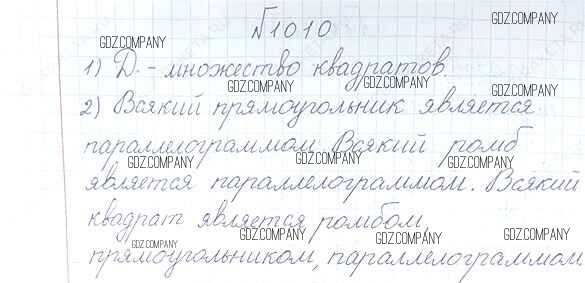 №1010
1) D. - множество квадратов.
2) Всякий прямоугольник является
параллелограммом. Всякий ромб
является параллелограммом. Всякий
квадрат является ромбом,
прямоугольником, параллелограммом
GDZ.COMPANY
GDZ.COMPANY
GDZ.COMPANY
GDZ.COMPANY
GDZ.COMPANY
GDZ.COMPANY
GDZ.COMPANY
GDZ.COMPANY
GDZ.COMPANY
GDZ.COMPANY
GDZ.COMPANY
GDZ.COMPANY
GDZ.COMPANY